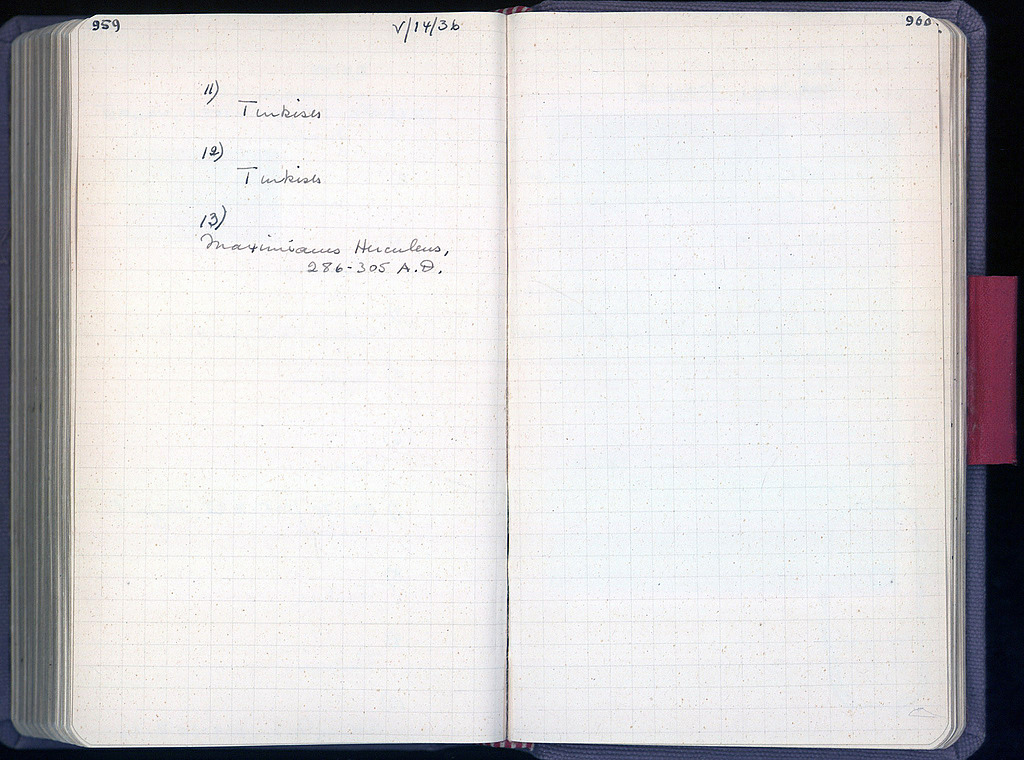 959
V/14/36
11)
Turkish
12)
Turkish
13)
Maximianus Herculeus,
286-305 A.D.
960.